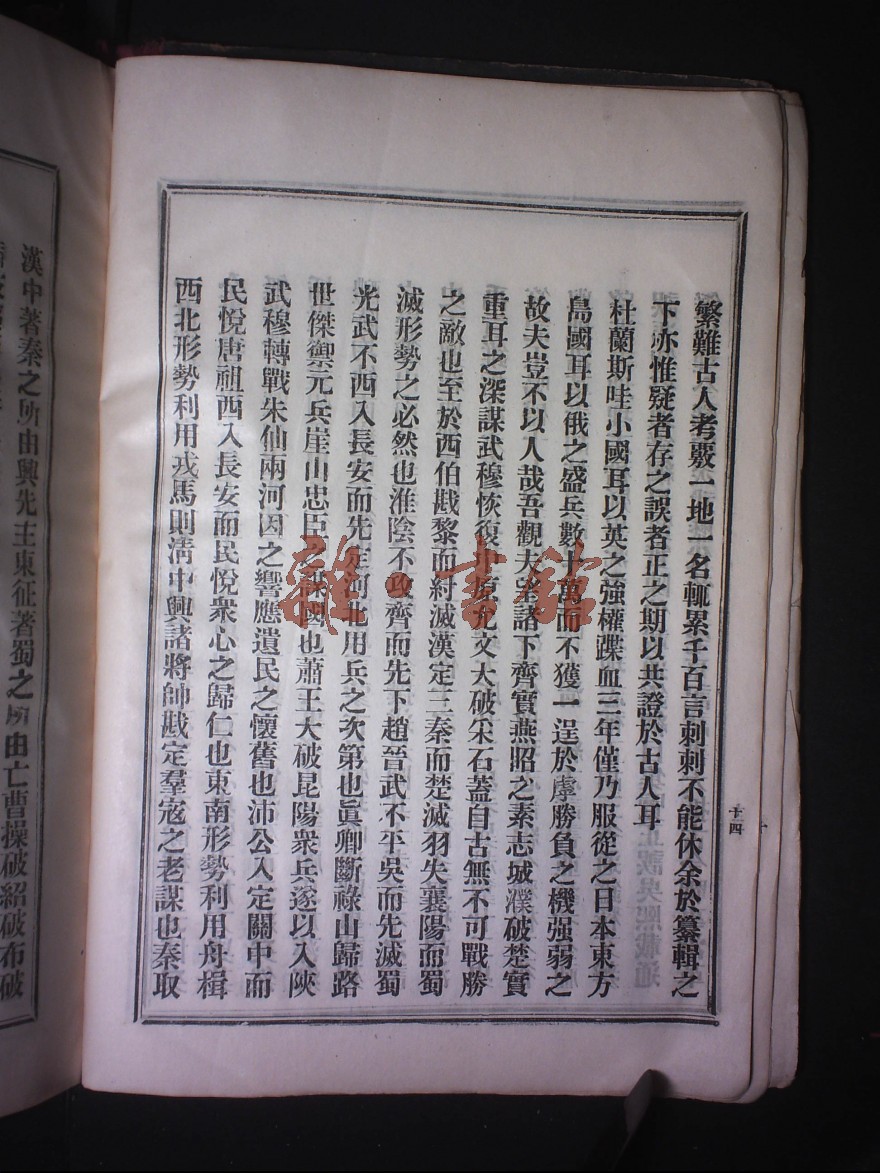 繁難古人考覈一地一名輒累千百言刺刺不能休余於纂輯之
下亦惟疑者存之誤者正之期以共證於古人耳
杜蘭斯哇小國耳以英之強權蹀血三年僅乃服從之日本東方
島國耳以俄之盛兵數十萬而不獲一逞於虖勝負之機强弱之
故夫豈不以人哉吾觀夫望諸下齊實燕昭之素志城濮破楚實
重耳之深謀武穆恢復中原允文大破采石蓋自古無不可戰勝
之敵也至於西伯戡黎而紂滅漢定三秦而楚滅羽失襄陽而蜀
滅形勢之必然也淮陰不攻齊而先下趙晉武不平吳而先滅蜀
光武不西入長安而先定河北用兵之次第也眞卿斷祿山歸路
世傑禦元兵崖山忠臣之謀國也蕭王大破昆陽衆兵遂以入陝
武穆轉戰朱仙兩河因之響應遺民之懷舊也沛公入定關中而
民悅唐祖西入長安而民悅衆心之歸仁也東南形勢利用舟楫
西北形勢利用戎馬則淸中興諸將帥戡定羣寇之老謀也秦取
漢中著秦之所由興先主東征著蜀之所由亡曹操破紹破布破
十四
雜·書館